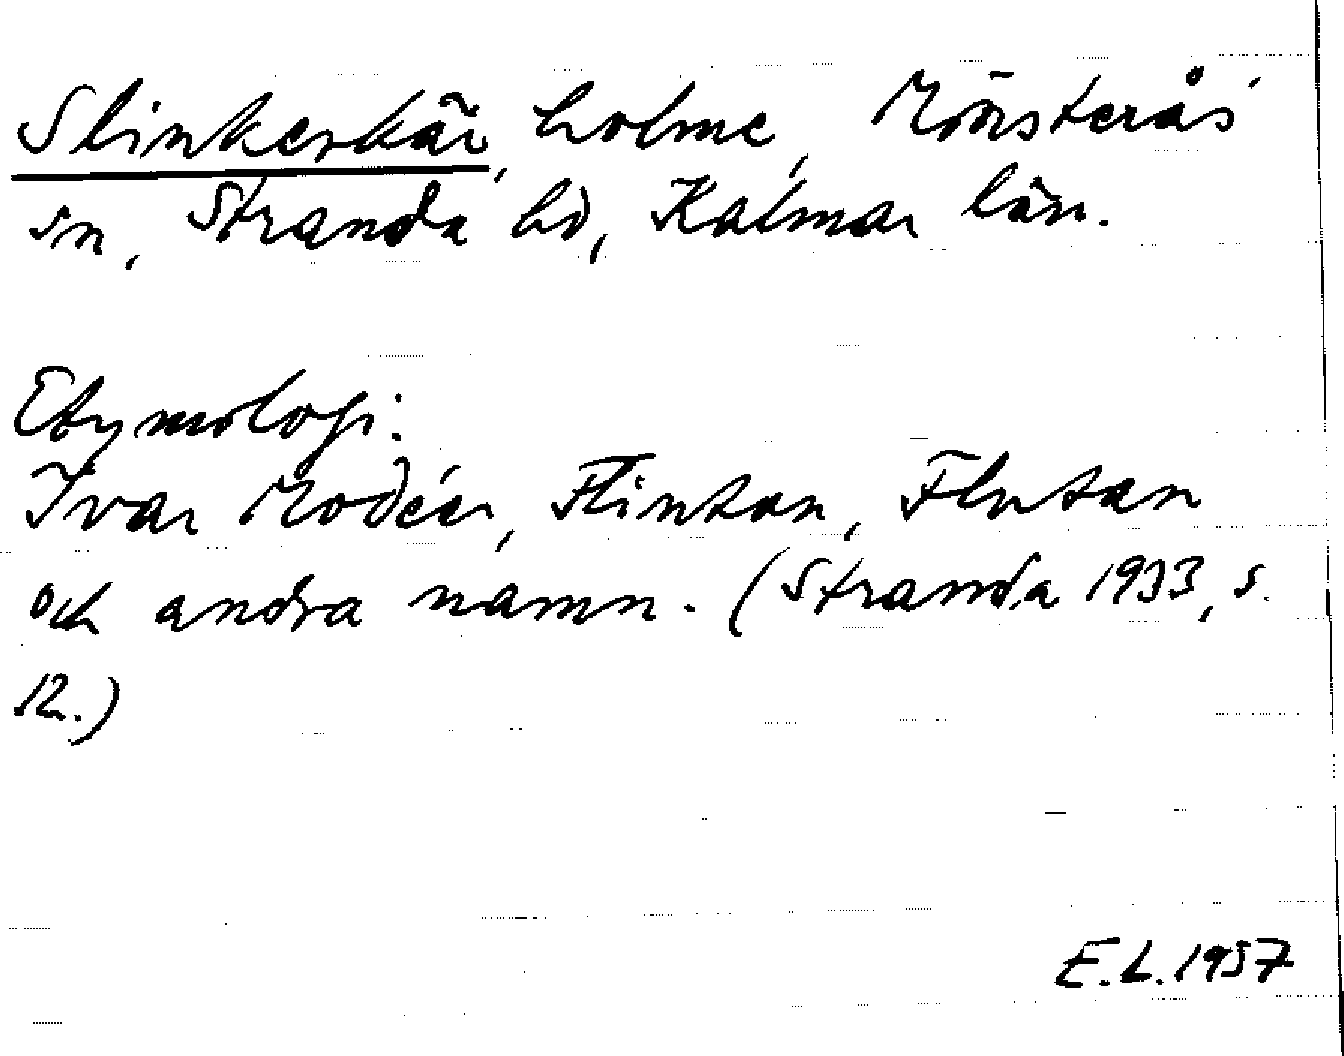 Slinkerkär, holme, Mönsterås
sn, Stranda hd, Kalmar län.
Etymologi:
Ivar Modéer, Flintan, Flutan
och andra namn. (Stranda 1933, s.
12.)
E.L. 1957